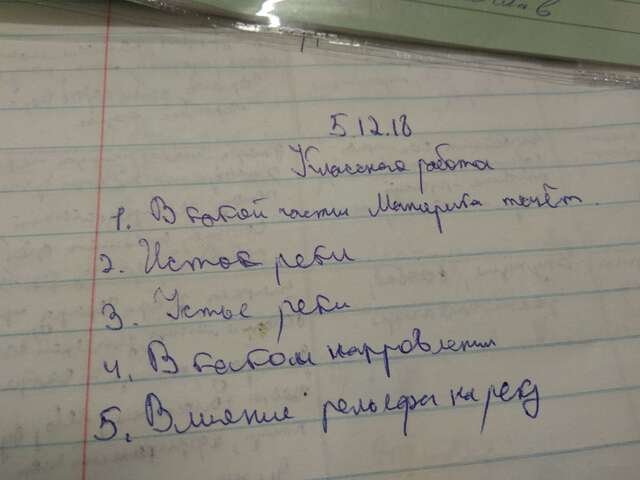 5 12.18
Классная работа
1. В какой части Материка течёт.
2. Исток реки
3. Устье реки
4. В каком направлении
5. Влияние рельефа на реку